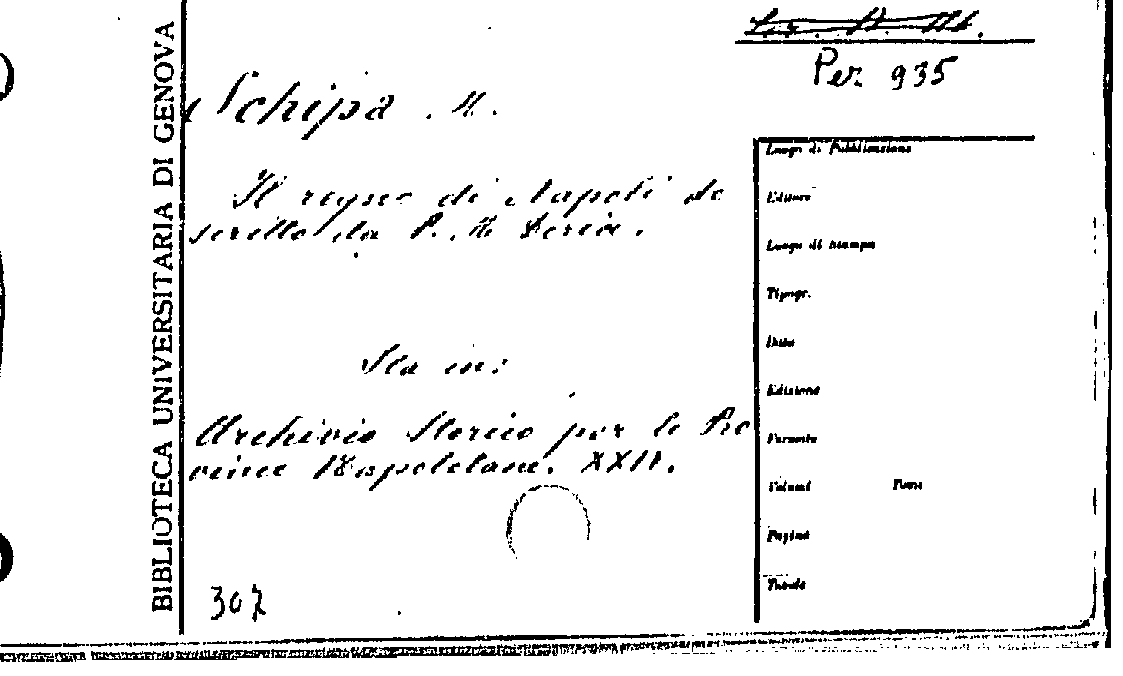 BIBLIOTECA UNIVERSITARIA DI GENOVA
Per 935
Schipa . M.
Il regno di Napoli de
scritto da P. M. Doria.
Sta in:
Archivio Storico per le Pro
vince Napoletane. XXIV.
307
Luogo di Pubblicazione
Editore
Luogo di stampa
Tipogr.
Data
Edizione
Formato
Volumi Tomi
Pagine
Tavole